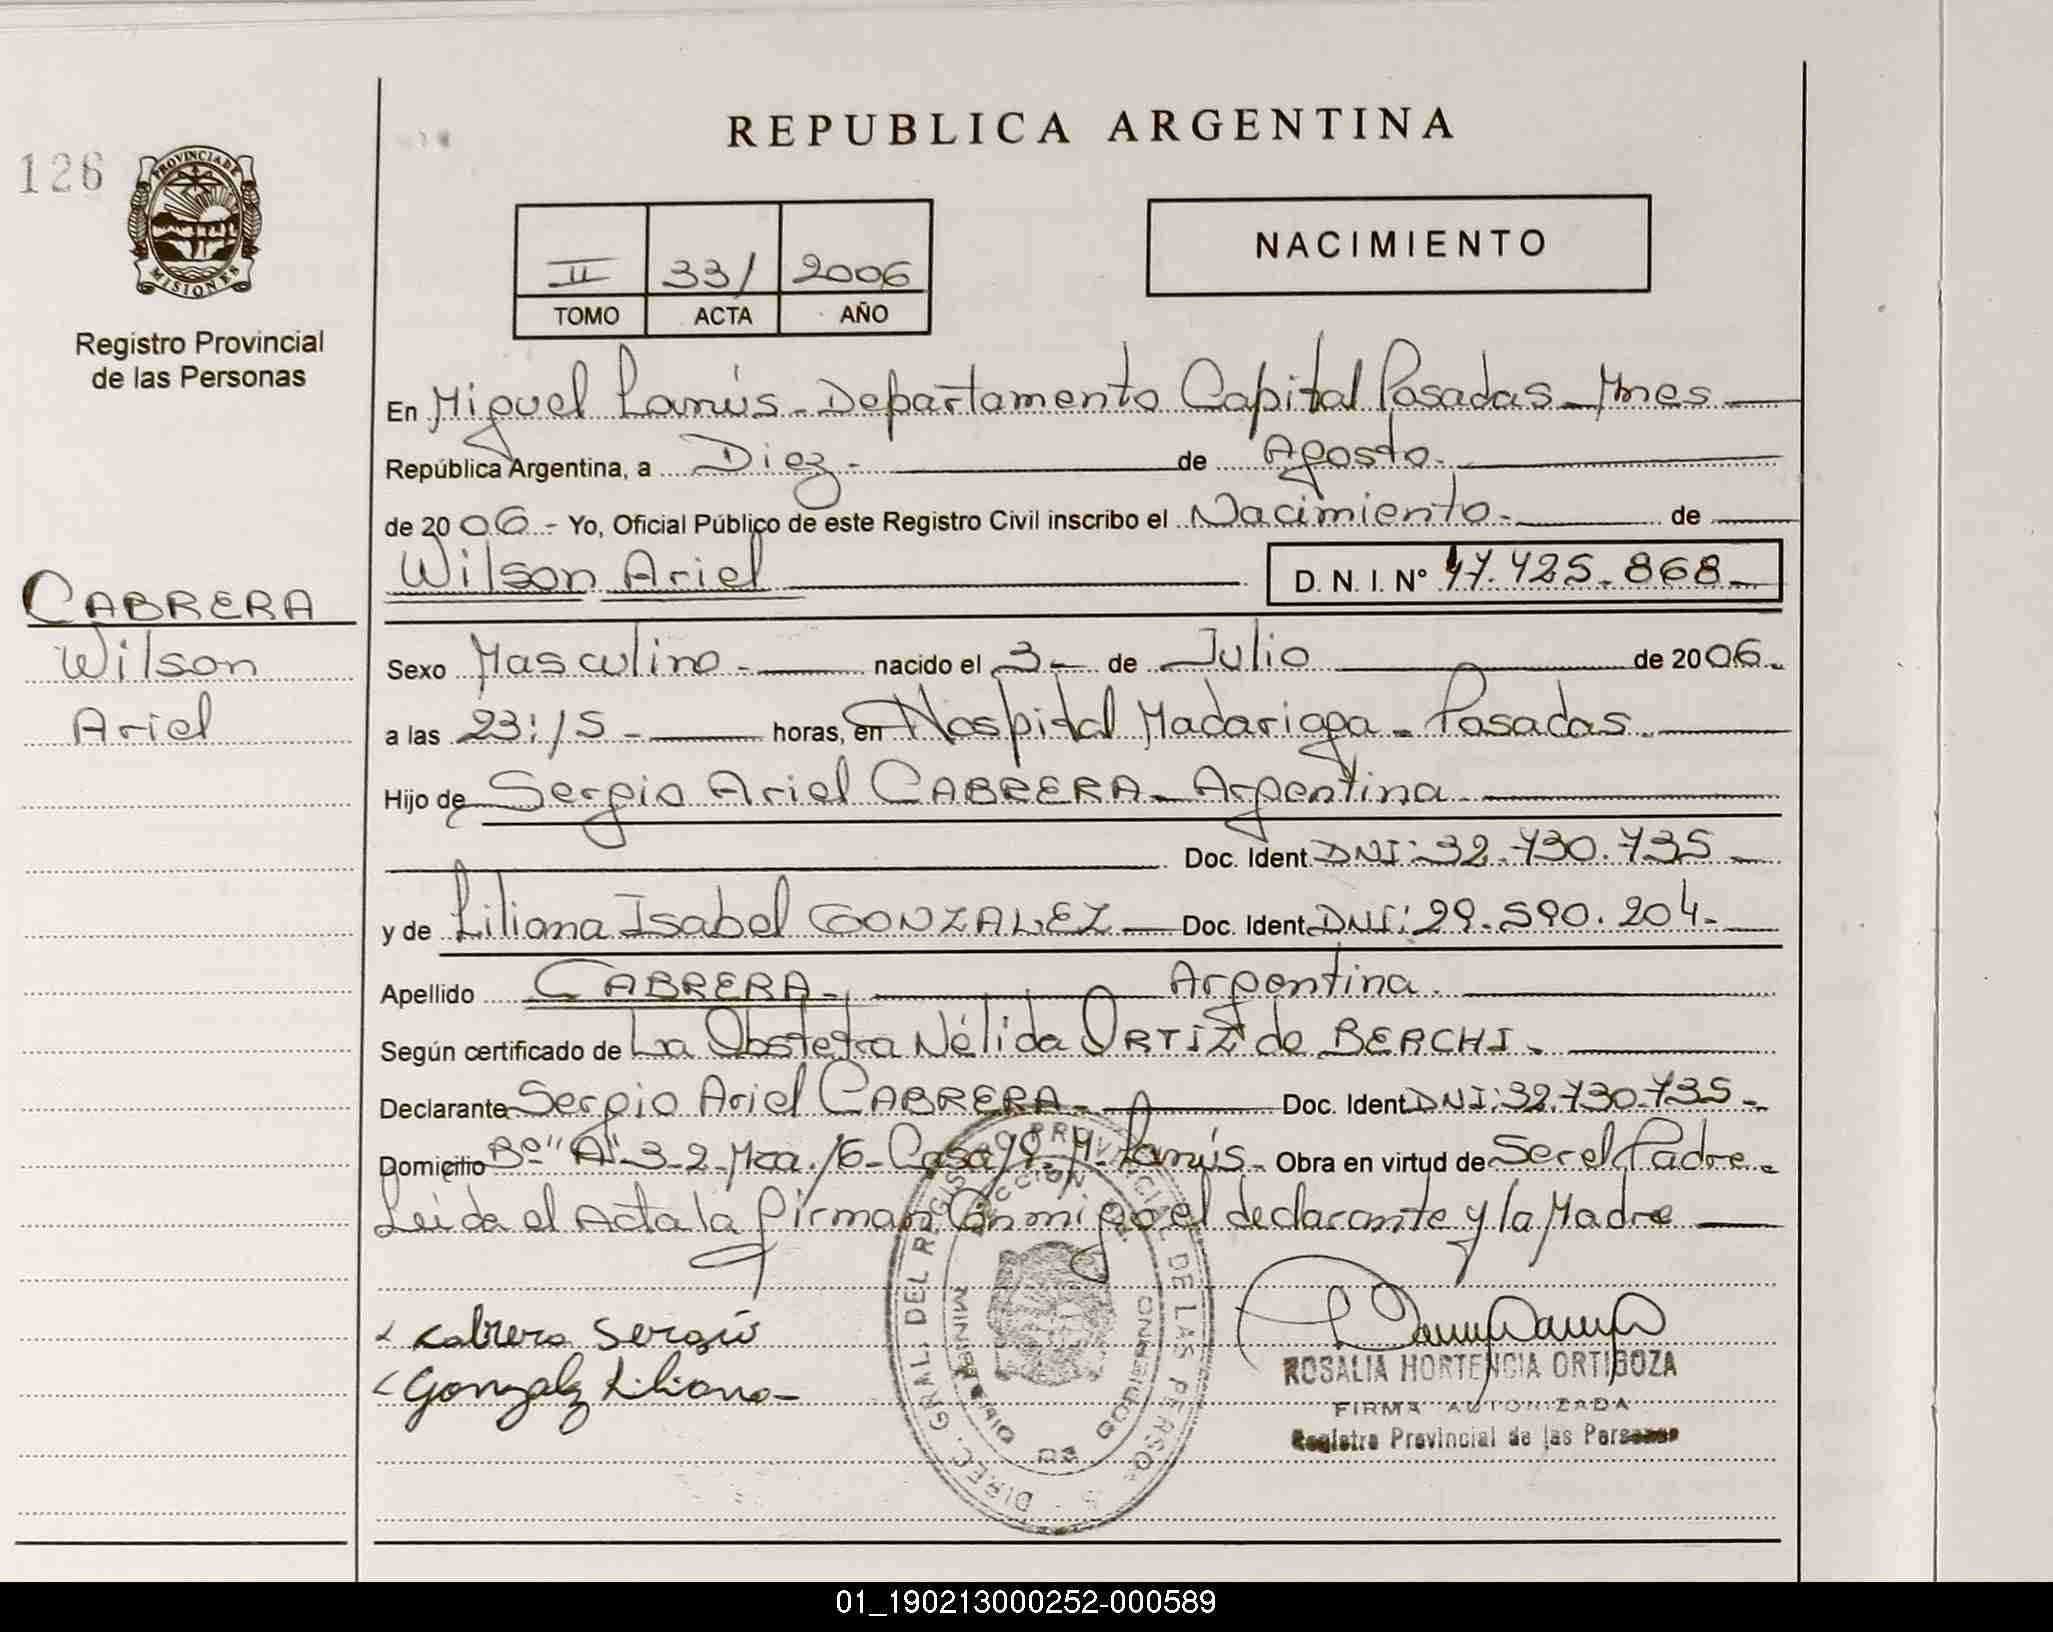 REPUBLICA ARGENTINA
126
PROVINCIA DE
MISIONES
Registro Provincial
de las Personas
II 331 2006
TOMO ACTA AÑO
NACIMIENTO
En Miguel Lanús - Departamento Capital Posadas - Mnes
República Argentina, a Diez - de Agosto.
de 2006.- Yo, Oficial Público de este Registro Civil inscribo el Nacimiento. de
Wilson Ariel D. N. I. Nº 47.425.868-
CABRERA
Wilson
Ariel
Sexo Masculino. nacido el 3- de Julio de 2006.
a las 23:15 - horas, en Hospital Madariaga - Posadas.
Hijo de Sergio Ariel CABRERA - Argentina
Doc. Ident. DNI: 32.730.735
y de Liliana Isabel GONZALEZ Doc. Ident. DNI: 29.590.204.
Apellido CABRERA - Argentina.
Según certificado de La Obstetra Nélida ORTIZ de BERCHI.
Declarante Sergio Ariel CABRERA - Doc. Ident. DNI: 32.730.735-
Domicilio Bº "A" 3-2 Mza. 16 - Casa M. Lanús - Obra en virtud de Ser el Padre.
Leida el Acta la firman Conmigo el declarante y la Madre
DIREC. GRAL. DEL REGISTRO PROVINCIAL DE LAS PERSO
Cabrera Sergio
Gonzalez Liliana
ROSALIA HORTENCIA ORTIGOZA
FIRMA AUTORIZADA
Registro Provincial de las Personas
01_190213000252-000589